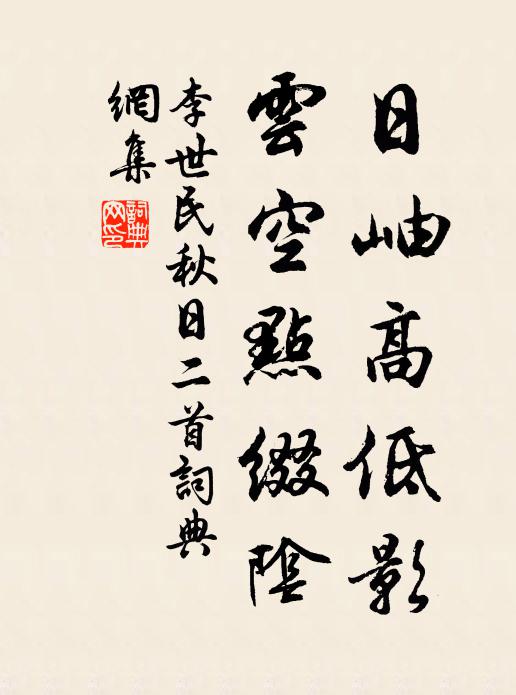 日岫高低影
雲空點綴陰
李世民秋日二首詞典
網集
詞典
网印